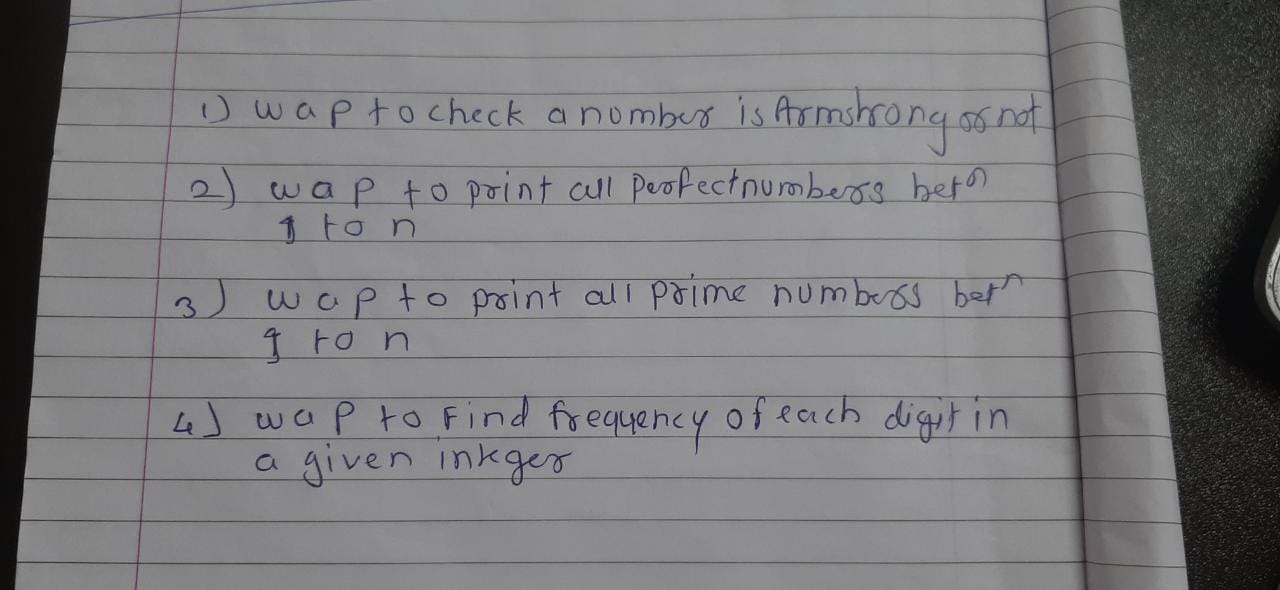 1) wap to check a number is Armstrong or not
2) wap to print all perfect numbers betn
1 to n
3) wap to print all prime numbers betn
1 to n
4) wap to Find frequency of each digit in
a given integer